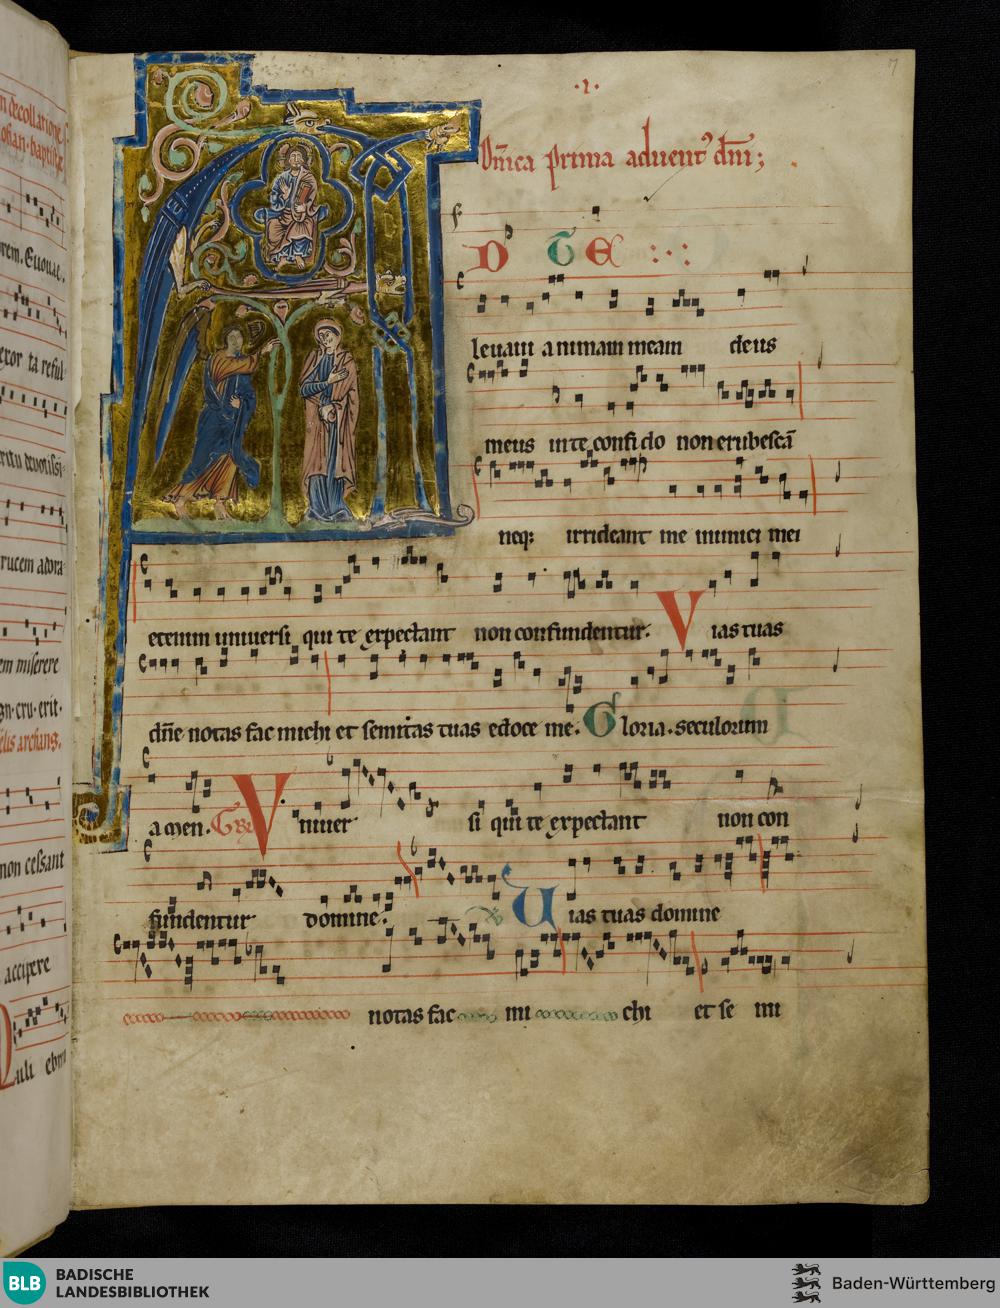 ·1·
7
Dm̄ica prima aduent⁹ dn̄i;
A D TE
leuaui animam meam deus
meus in te confido non erubescā
neq; irrideant me inimici mei
etenim uniuersi qui te expectant non confundentur. Vias tuas
dn̄e notas fac michi et semitas tuas edoce me. Gloria. seculorum
amen. GR Vniuer si qui te expectant non con
fundentur domine. Uias tuas domine
notas fac mi chi et se mi
n decollatione
rem. Euouae.
exor ta reful
rucem adora
em miserere
gn·cru·erit·
elis archang.
non cessant
accipere
BLB BADISCHE
LANDESBIBLIOTHEK
Baden-Württemberg